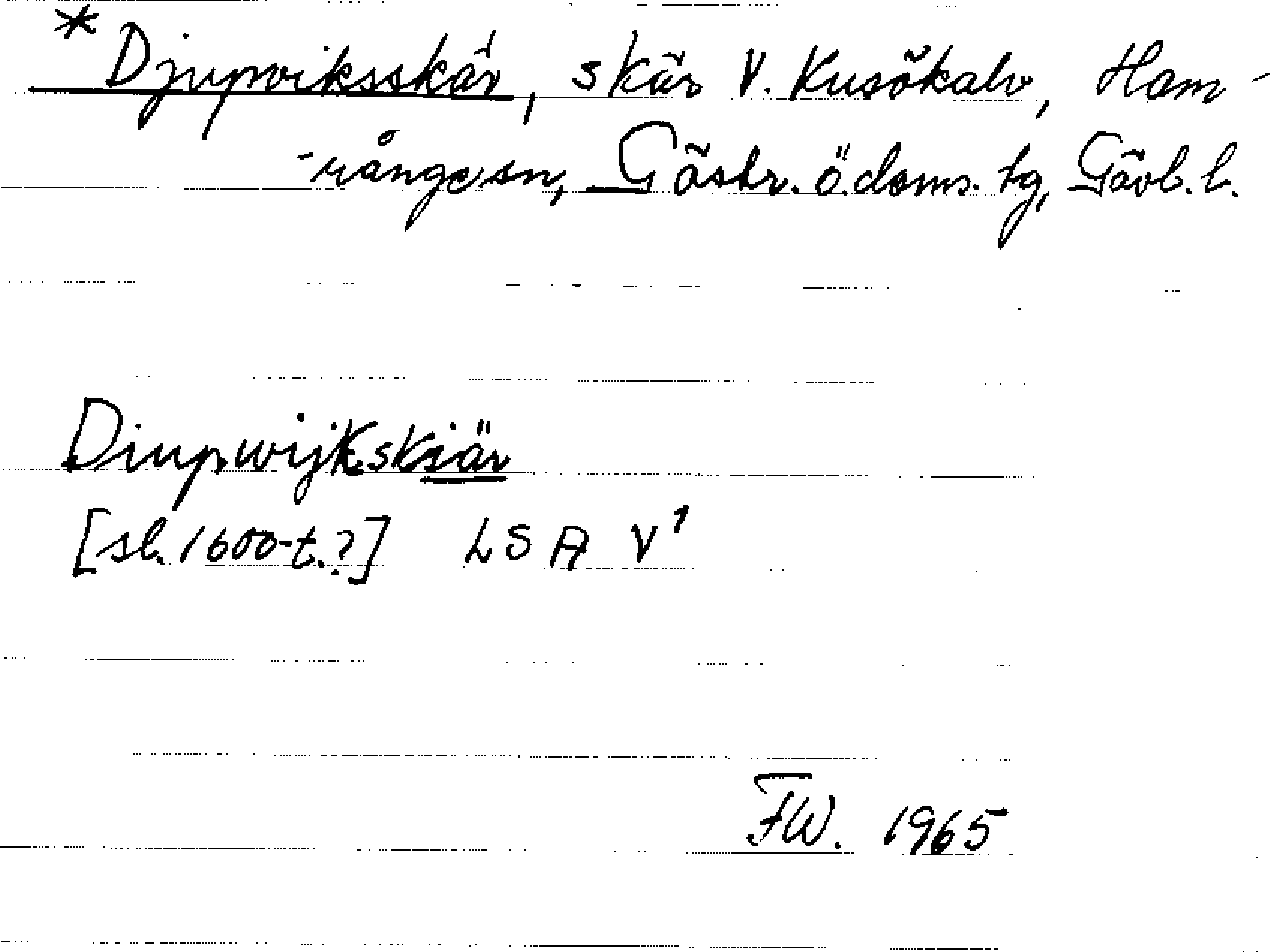 * Djupviksskär, skär V. Kusökalv, Ham-
-rånge sn, Gästr. ö. doms. tg, Gävl. l.
Diupwijkskiär
[sl. 1600-t.?] LSA V¹
FW. 1965